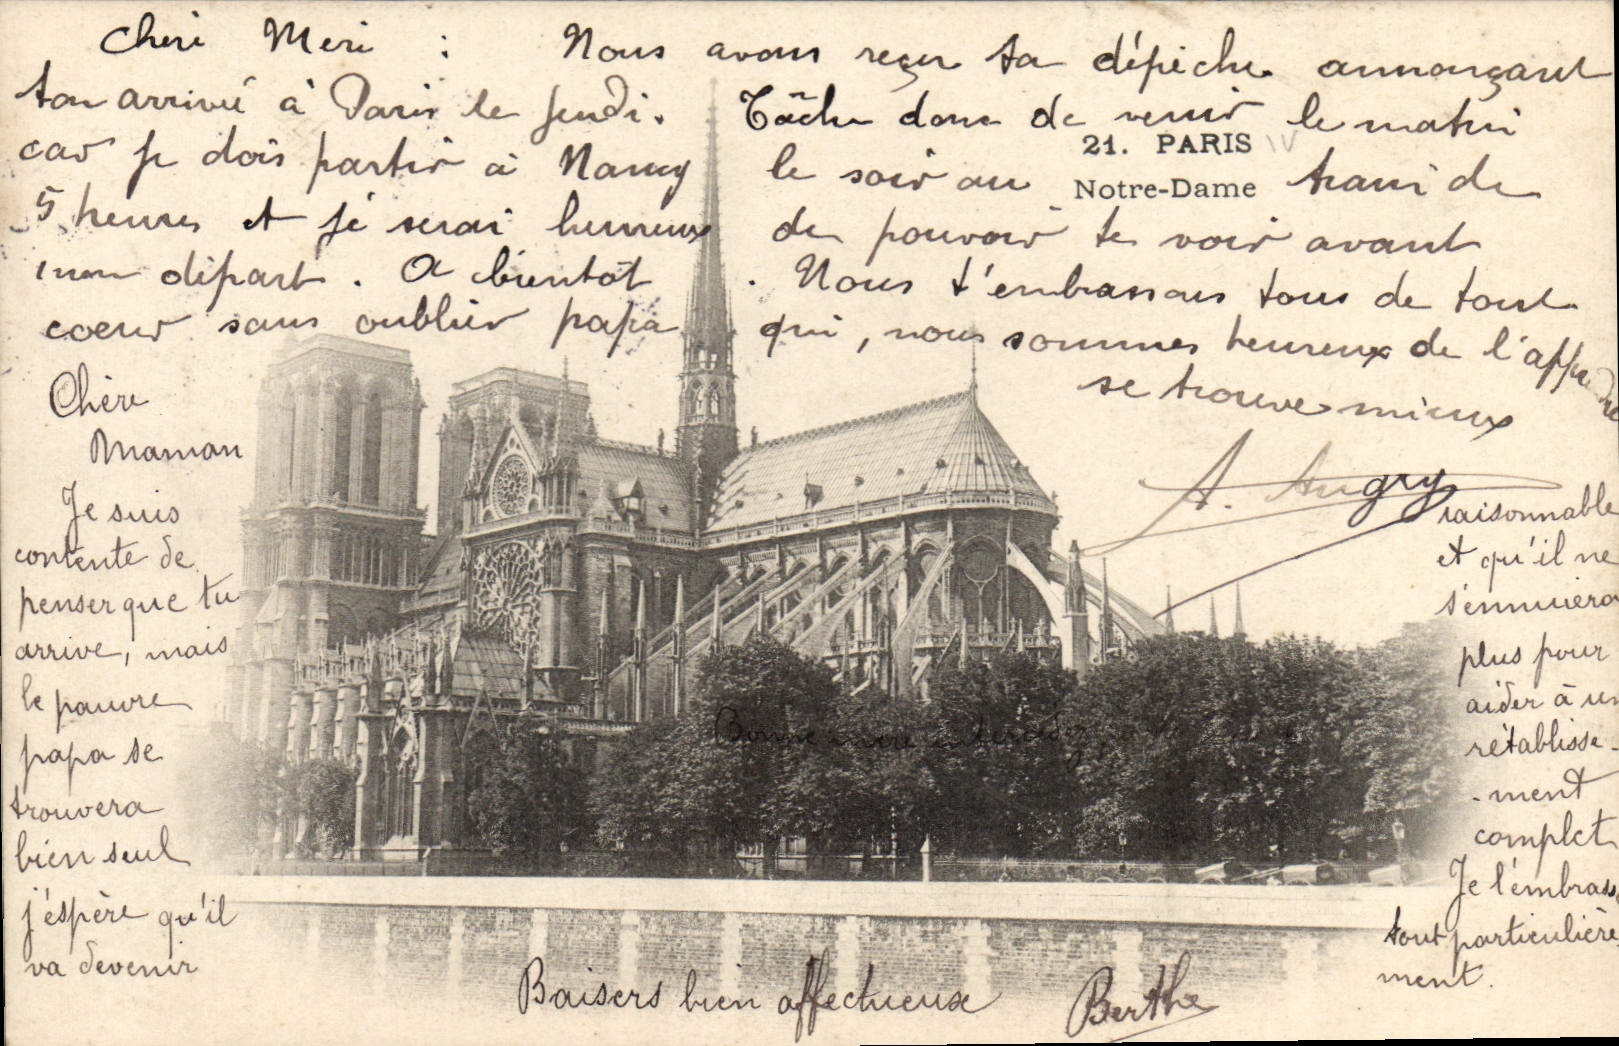 Chère Mère : Nous avons reçu ta dépêche annonçant
ton arrivée à Paris le jeudi. Tâche donc de venir le matin
21. PARIS
car je dois partir à Nancy le soir au train de
Notre-Dame
5 heures et je serai heureux de pouvoir te voir avant
mon départ. A bientôt. Nous t'embrassons tous de tout
coeur sans oublier papa qui, nous sommes heureux de l'apprendre
se trouve mieux
A. Augry
Chère
Maman
Je suis
contente de
penser que tu
arrive, mais
le pauvre
papa se
trouvera
bien seul
j'éspère qu'il
va devenir
raisonnable
et qu'il ne
s'ennuiera
plus pour
aider à un
rétablisse-
-ment
complet
Je l'émbrasse
tout particulière
ment.
Bonne
Baisers bien affectueux
Berthe